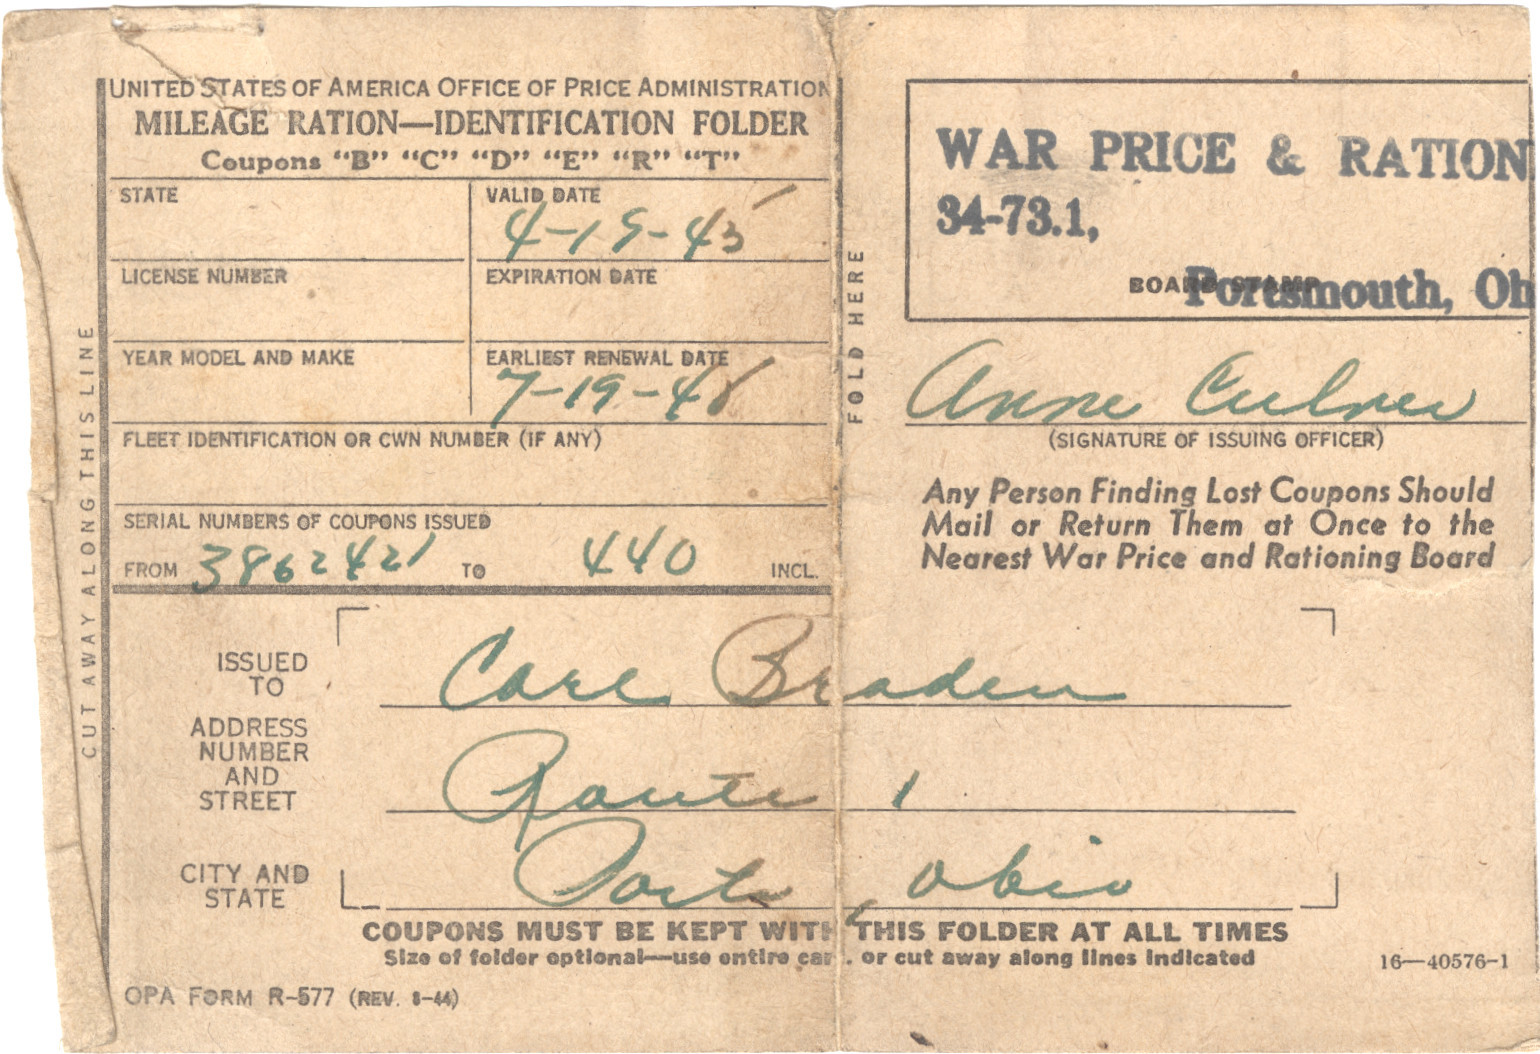 UNITED STATES OF AMERICA OFFICE OF PRICE ADMINISTRATION
MILEAGE RATION—IDENTIFICATION FOLDER
Coupons “B” “C” “D” “E” “R” “T”
STATE
VALID DATE
4-19-45
LICENSE NUMBER
EXPIRATION DATE
YEAR MODEL AND MAKE
EARLIEST RENEWAL DATE
7-19-45
FLEET IDENTIFICATION OR CWN NUMBER (IF ANY)
SERIAL NUMBERS OF COUPONS ISSUED
FROM 3862421 TO 440 INCL.
CUT AWAY ALONG THIS LINE
FOLD HERE
WAR PRICE & RATION
34-73.1,
BOARD STAMP
Portsmouth, Oh
Anne Culver
(SIGNATURE OF ISSUING OFFICER)
Any Person Finding Lost Coupons Should
Mail or Return Them at Once to the
Nearest War Price and Rationing Board
ISSUED TO Carl Braden
ADDRESS NUMBER AND STREET Route 1
CITY AND STATE Ports, Ohio
COUPONS MUST BE KEPT WITH THIS FOLDER AT ALL TIMES
Size of folder optional—use entire car , or cut away along lines indicated
16—40576-1
OPA FORM R-577 (REV. 8-44)